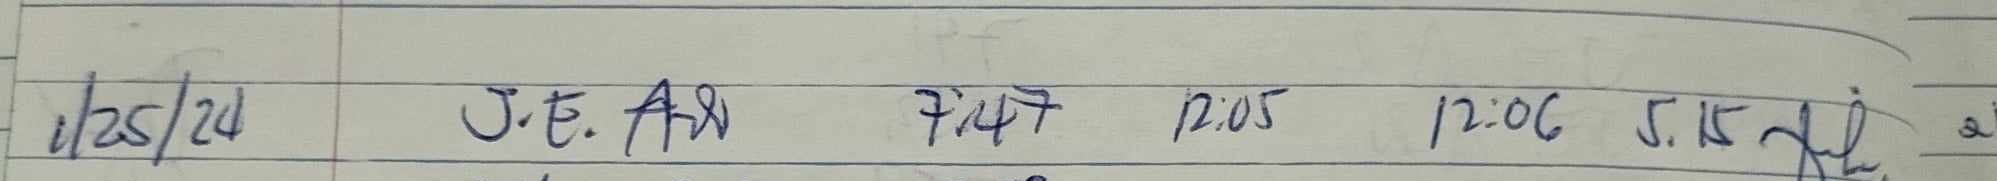 1/25/24 J.E. 7:47 12:05 12:06 5.15